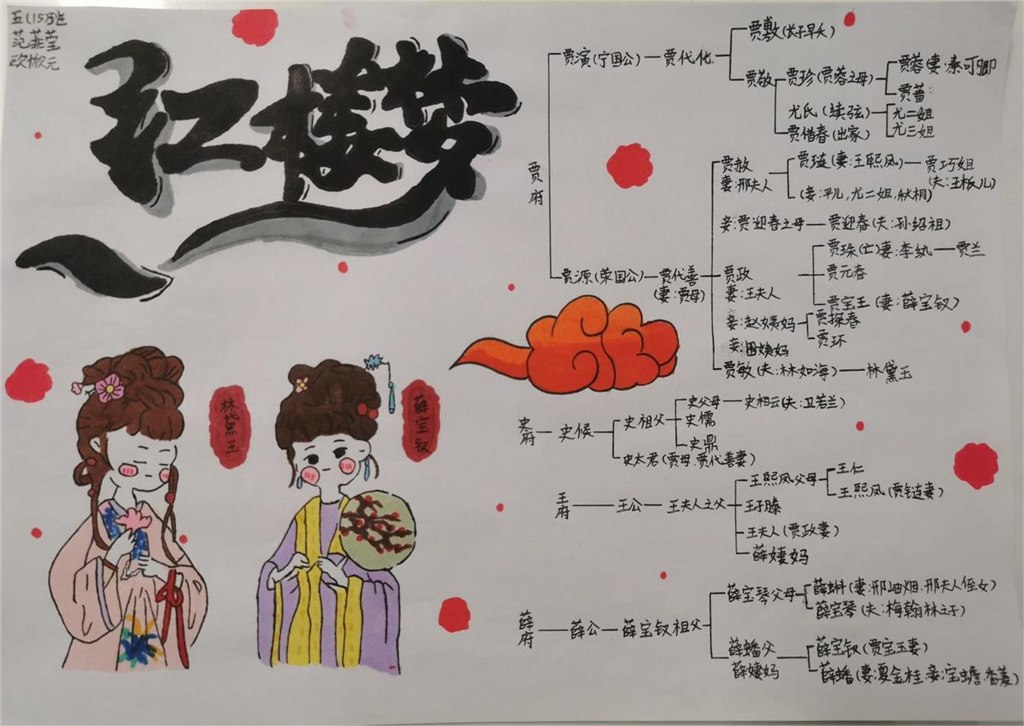 五(15)班
范芸莹
欧懒元
红楼梦
林黛玉
薛宝钗
贾府
贾演(宁国公)
贾代化
贾敷(长子早夭)
贾敬
贾珍(贾蓉之母)
贾蓉(妻:秦可卿
贾蔷
尤氏(续弦)
尤二姐
尤三姐
贾惜春(出家)
贾源(荣国公)
贾代善
(妻:贾母)
贾赦
妻:邢夫人
贾琏(妻:王熙凤)
贾巧姐
(夫:王板儿)
(妾:平儿,尤二姐,秋桐)
妾:贾迎春之母
贾迎春(夫:孙绍祖)
贾政
妻:王夫人
贾珠(亡)妻:李纨
贾兰
贾元春
贾宝玉(妻:薛宝钗)
妾:赵姨妈
贾探春
贾环
妾:田姨妈
贾敏(夫:林如海)
林黛玉
史府
史候
史祖父
史父母
史相云(夫:卫若兰)
史儒
史鼎
史太君(贾母.贾代善妻)
王府
王公
王夫人之父
王熙凤父母
王仁
王熙凤(贾链妻)
王子腾
王夫人(贾政妻)
薛姨妈
薛府
薛公
薛宝钗祖父
薛宝琴父母
薛蝌(妻:邢岫烟.邢夫人侄女)
薛宝琴(夫:梅翰林之子)
薛蟠父
薛姨妈
薛宝钗(贾宝玉妻)
薛蟠(妻:夏金桂,妾:宝蟾.香菱)